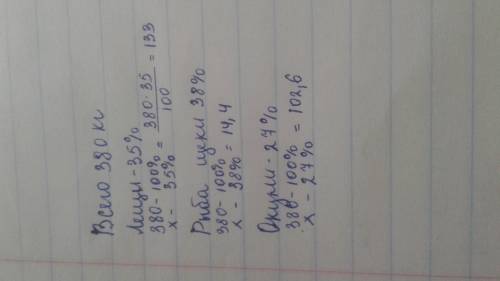 Всего 380 кг
Лещи - 35%
380 - 100% = 380 · 35 / 100 = 133
х - 35%
Рыба щуки 38%
380 - 100% = 14,4
х - 38%
Окуни - 27%
380 - 100% = 102,6
х - 27%